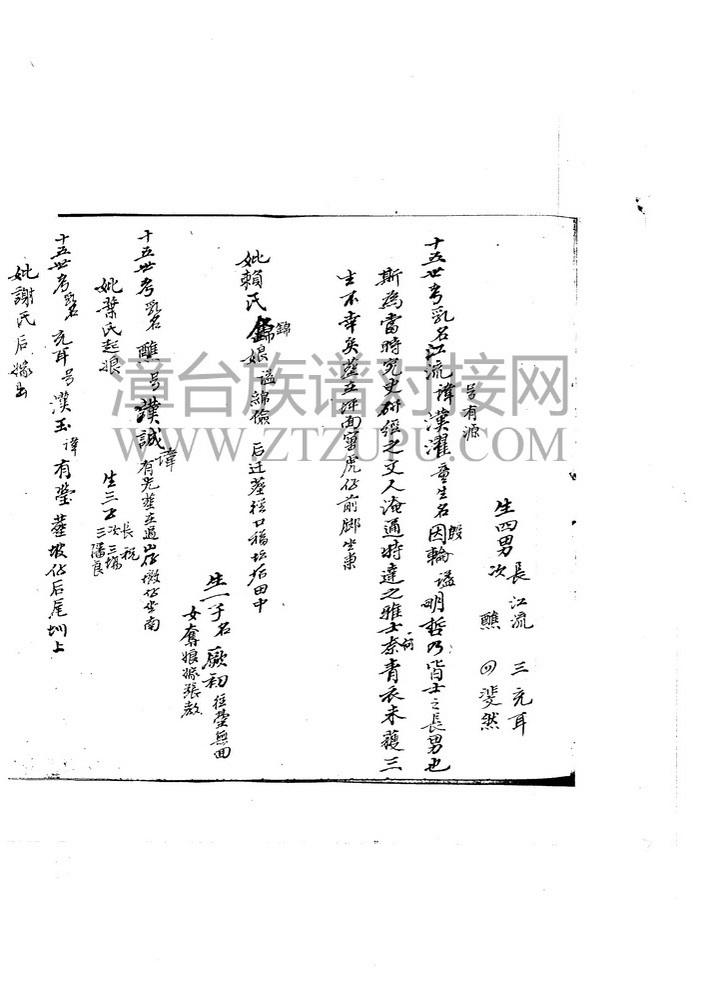 生四男 長 江流 三 充耳
次 醮 四 斐然
号有源
十五世考乳名江流諱漢濯童生名因輪諡明哲乃皆士之長男也
斯為當時究史研經之文人淹通時達之雅士奈何青衣未蘐三
生不幸矣 面 虎仔前脚坐東
妣賴氏錦娘諡綿儉 后迁葬徑口福坵墘田中
錦
生一子名厥初往 無回
女奪娘嫁張赦
十五世考乳名醮号謹誠諱有光葬在過山仔墩仔坐南
妣葉氏起娘 生三子 長 稅
次三
三 良
十五世考乳名 充耳号漢玉諱有瑩葬坡仔后尾圳上
妣謝氏后嫁出
漳台族谱对接网
WWW.ZTZUPU.COM